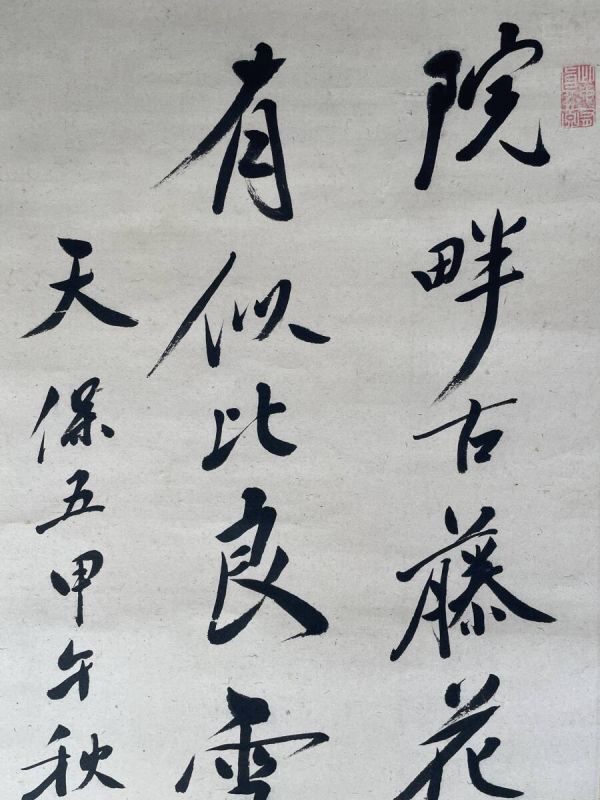 院畔古藤花
有似比良雪
天保五甲午秋